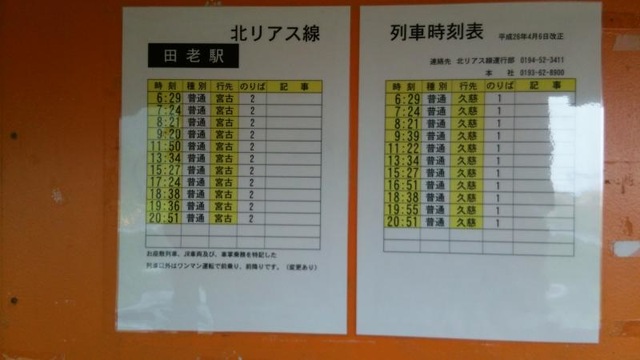 北リアス線
田老駅
時刻 種別 行先 のりば 記事
6:29 普通 宮古 2
7:24 普通 宮古 2
8:21 普通 宮古 2
9:20 普通 宮古 2
11:50 普通 宮古 2
13:34 普通 宮古 2
15:27 普通 宮古 2
17:24 普通 宮古 2
18:38 普通 宮古 2
19:36 普通 宮古 2
20:51 普通 宮古 2
お座敷列車、JR車両及び、車掌乗務を特記した
列車以外はワンマン運転で前乗り、前降りです。(変更あり)
列車時刻表 平成26年4月6日改正
連絡先 北リアス線運行部 0194-52-3411
本社 0193-62-8900
時刻 種別 行先 のりば 記事
6:29 普通 久慈 1
7:24 普通 久慈 1
8:21 普通 久慈 1
9:39 普通 久慈 1
11:22 普通 久慈 1
13:34 普通 久慈 1
15:27 普通 久慈 1
16:51 普通 久慈 1
18:38 普通 久慈 1
19:55 普通 久慈 1
20:51 普通 久慈 1